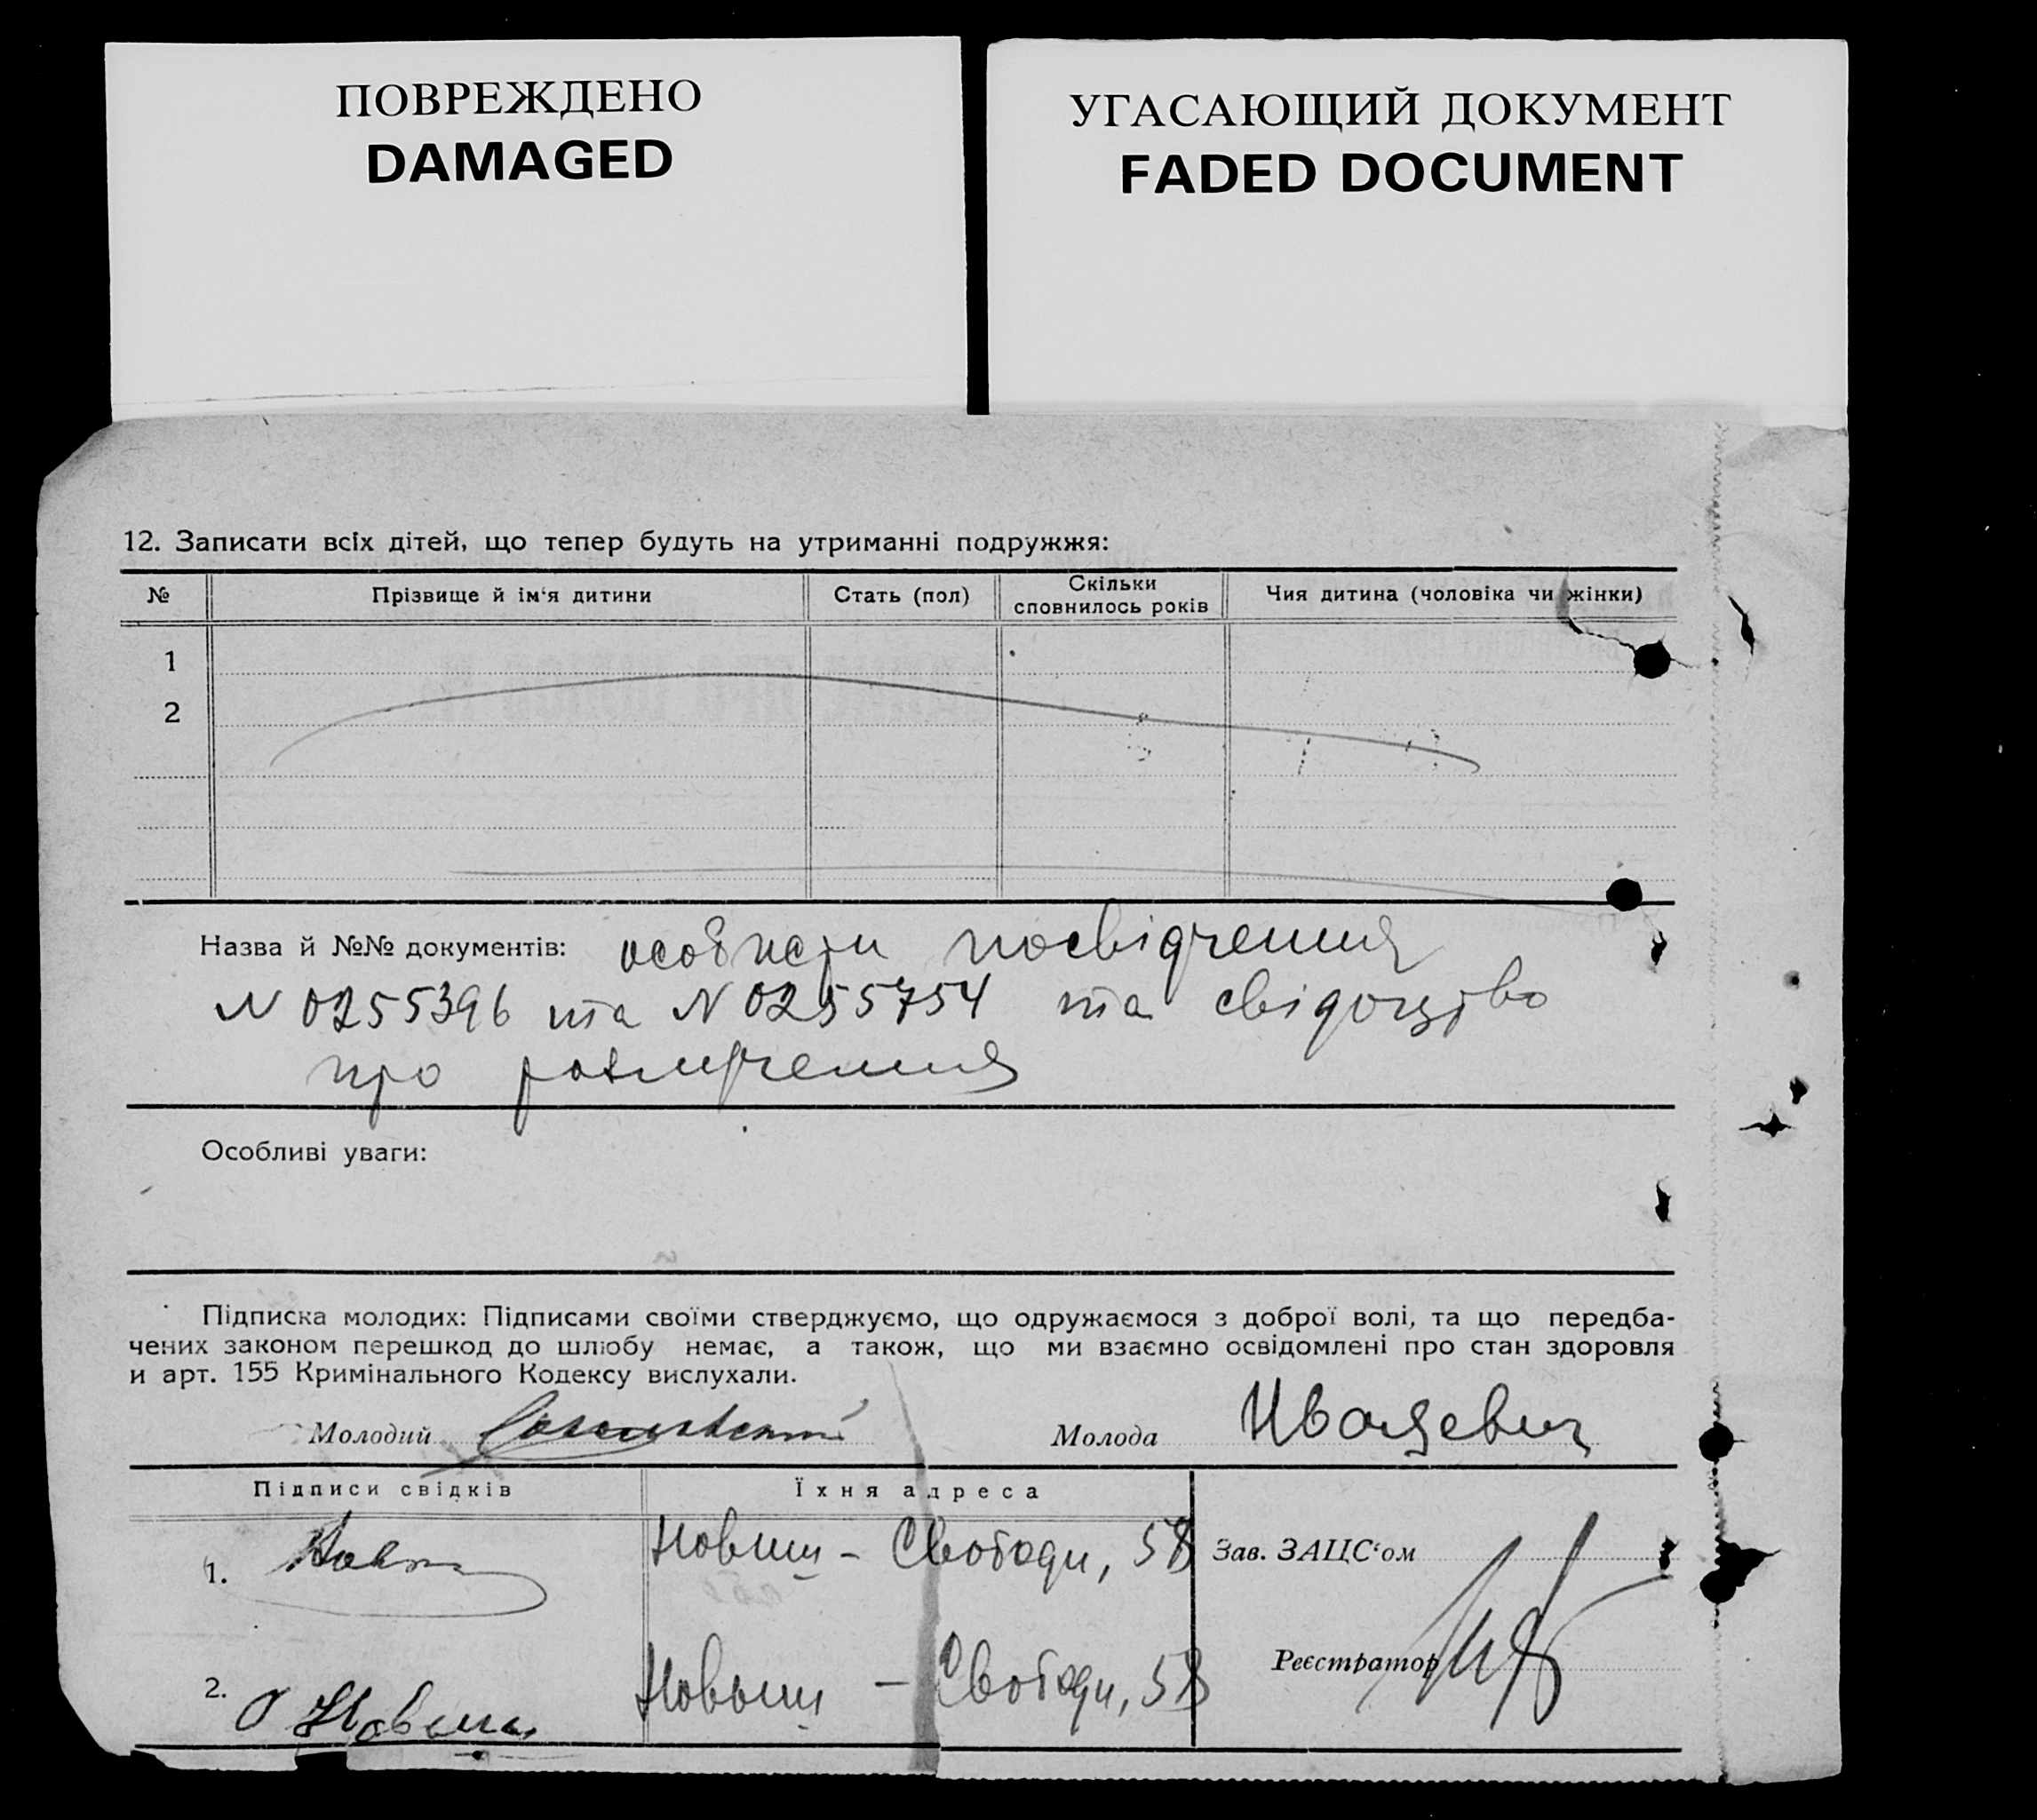 ПОВРЕЖДЕНО
DAMAGED
УГАСАЮЩИЙ ДОКУМЕНТ
FADED DOCUMENT
12. Записати всіх дітей, що тепер будуть на утриманні подружжя:
№ Прізвище й ім‘я дитини Стать (пол) Скільки сповнилось років Чия дитина (чоловіка чи жінки)
1
2
Назва й №№ документів: особисти посвідчення
N 0255396 та N 0255754 та свідоцтво
про розлучення
Особливі уваги:
Підписка молодих: Підписами своїми стверджуємо, що одружаємося з доброї волі, та що передба-
чених законом перешкод до шлюбу немає, а також, що ми взаємно освідомлені про стан здоровля
и арт. 155 Кримінального Кодексу вислухали.
Молодий Молода
Підписи свідків Їхня адреса
1. Свободи, 58 Зав. ЗАЦС‘ом
Реєстратор
2. Свободи, 58